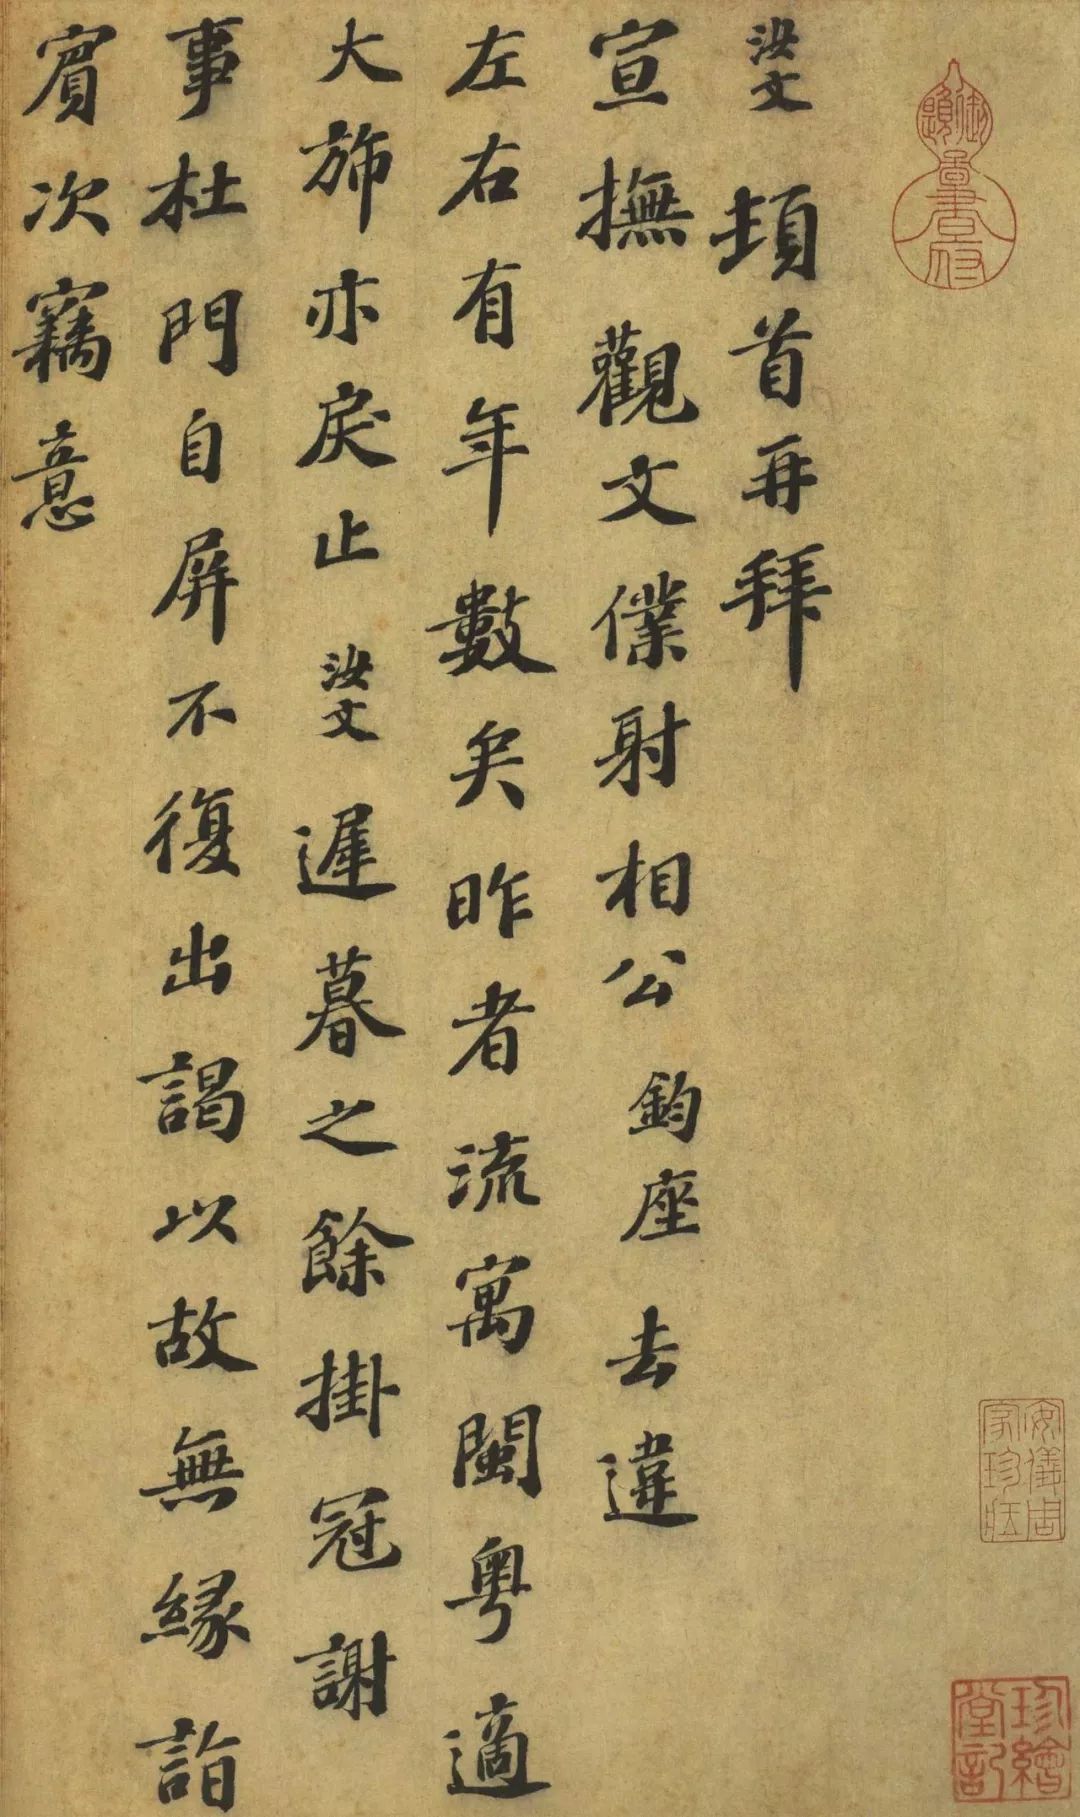 汝文頓首再拜
宣撫觀文僕射相公鈞座去違
左右有年數矣昨者流寓閩粵適
大旆亦戾止汝文遲暮之餘掛冠謝
事杜門自屏不復出謁以故無緣詣
賓次竊意
御題
圖書府
安儀周
家珍藏
珍繪
堂記